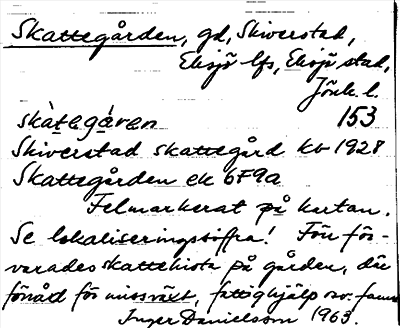 Skattegården, gd, Skiverstad,
Eksjö lfs, Eksjö stad,
Jönk. l.
skàtegáren 153
Skiverstad skattegård kb 1928
Skattegården ek 6F9a
Felmarkerat på kartan.
Se lokaliseringssiffra! Förr för-
varades skattekista på gården, där
förråd för missväxt, fattighjälp osv. fanns
Inger Danielsson 1963.